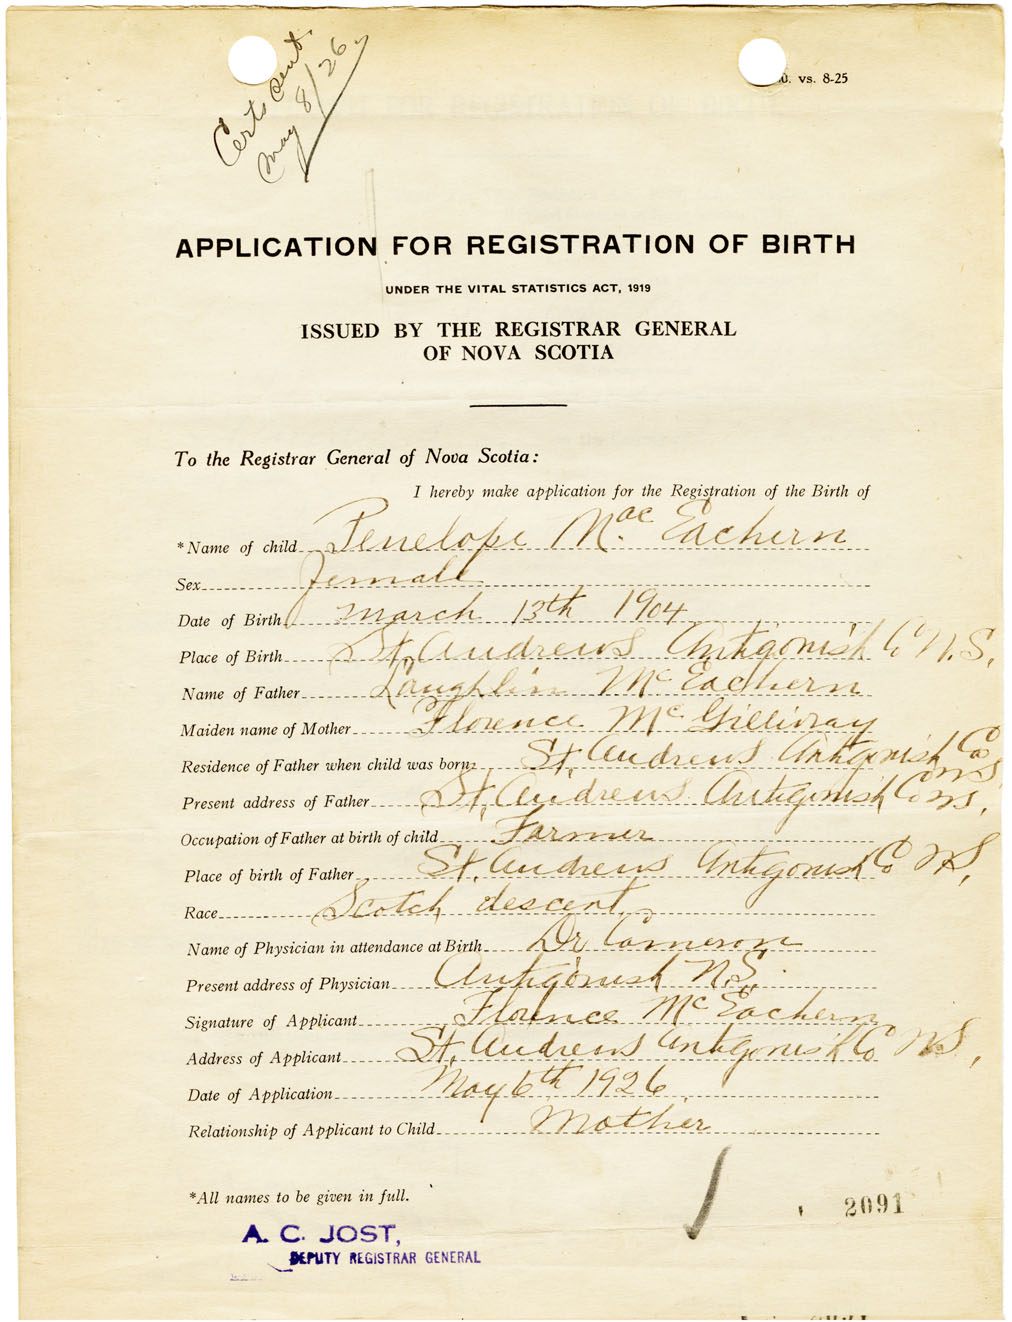 Certs sent.
May 8/26
vs. 8-25
APPLICATION FOR REGISTRATION OF BIRTH
UNDER THE VITAL STATISTICS ACT, 1919
ISSUED BY THE REGISTRAR GENERAL
OF NOVA SCOTIA
To the Registrar General of Nova Scotia:
I hereby make application for the Registration of the Birth of
*Name of child Penelope Mac Eachern
Sex Female
Date of Birth March 13th 1904
Place of Birth St. Andrews Antigonish Co N.S.
Name of Father Laughlin McEachern
Maiden name of Mother Florence McGillivray
Residence of Father when child was born: St. Andrews Antigonish Co NS
Present address of Father St. Andrews Antigonish Co NS.
Occupation of Father at birth of child Farmer
Place of birth of Father St. Andrews Antigonish Co N.S.
Race Scotch descent
Name of Physician in attendance at Birth Dr Cameron
Present address of Physician Antigonish N.S.
Signature of Applicant Florence McEachern
Address of Applicant St. Andrews Antigonish Co N.S.
Date of Application May 6th 1926
Relationship of Applicant to Child Mother
*All names to be given in full.
2091
A. C. JOST,
DEPUTY REGISTRAR GENERAL